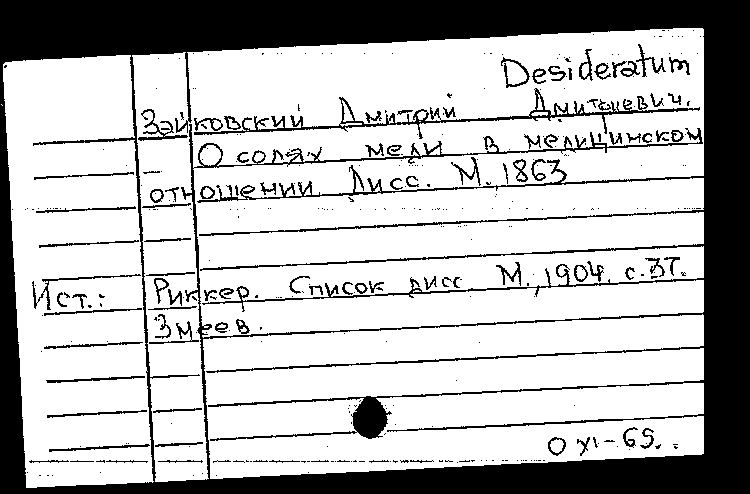 Desideratum
Зэйковский Дмитрий Дмитриевич.
О солях меди в медицинском
отношении. Дисс. М., 1863
Ист.: Риккер. Список дисс. М., 1904. с. 37.
Змеев.
О XI-65.